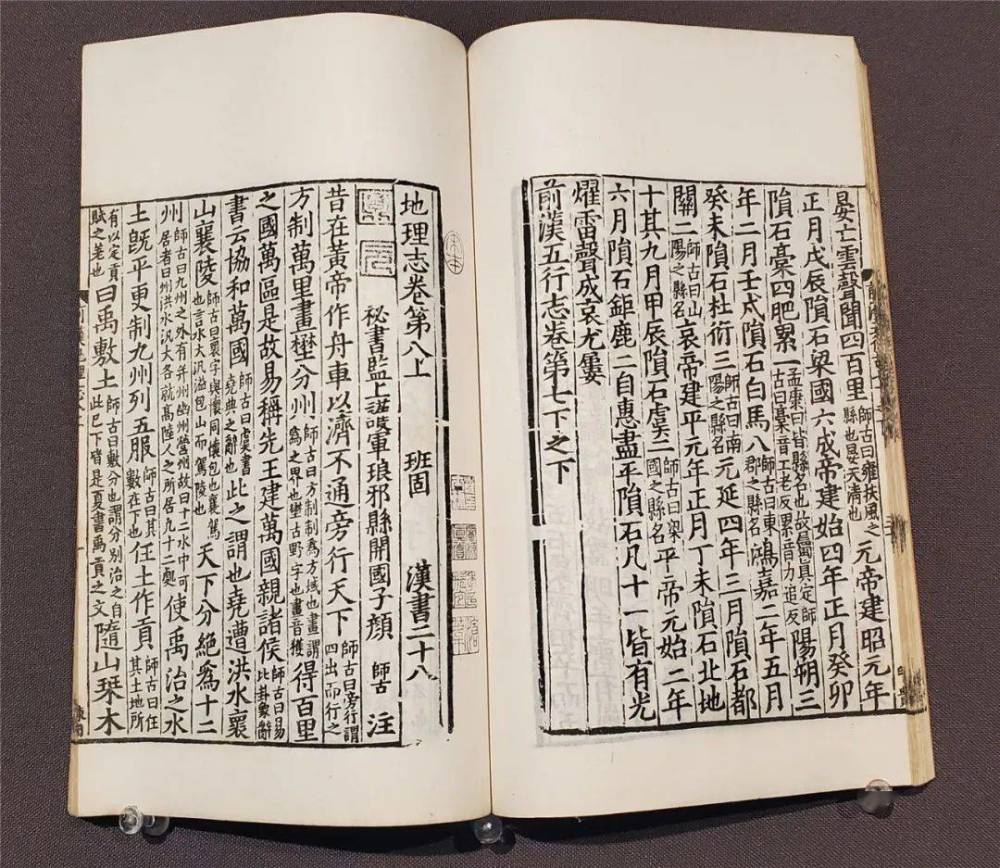 晏亡雲聲聞四百里師古曰雍扶風之縣也晏天清也元帝建昭元年
正月戊辰隕石梁國六成帝建始四年正月癸卯
隕石稾四肥累一孟康曰皆縣名也故屬真定師古曰稾音工老反累音力追反陽朔三
年二月壬戌隕石白馬八師古曰東郡之縣名鴻嘉二年五月
癸未隕石杜衍三師古曰南陽之縣名元延四年三月隕石都
關二師古曰山陽之縣名哀帝建平元年正月丁未隕石北地
十其九月甲辰隕石虛二師古曰梁國之縣名平帝元始二年
六月隕石鉅鹿二自惠盡平隕石凡十一皆有光
燿雷聲成哀尤屢
前漢五行志卷第七下之下
地理志卷第八上 班固 漢書二十八
秘書監上護軍琅邪縣開國子顏 師古 注
昔在黃帝作舟車以濟不通旁行天下師古曰旁行謂四出而行之
方制萬里畫壄分州師古曰方制制為方域也畫謂為之界也壄古野字也畫音獲得百里
之國萬區是故易稱先王建萬國親諸侯師古曰易比卦象辭
書云協和萬國師古曰虞書堯典之辭也此之謂也堯遭洪水襄
山襄陵師古曰襄字與懷同懷包也襄駕也言水大汎溢包山而駕陵也天下分絕為十二
州師古曰九州之外有并州幽州營州故曰十二水中可居者曰州洪水汎大各就高陸人之所居凡十二處使禹治之水
土既平更制九州列五服師古曰其數在下也任土作貢師古曰任其土地所
有以定貢賦之差也曰禹敷土師古曰敷分也謂分別治之自此已下皆是夏書禹貢之文隨山栞木